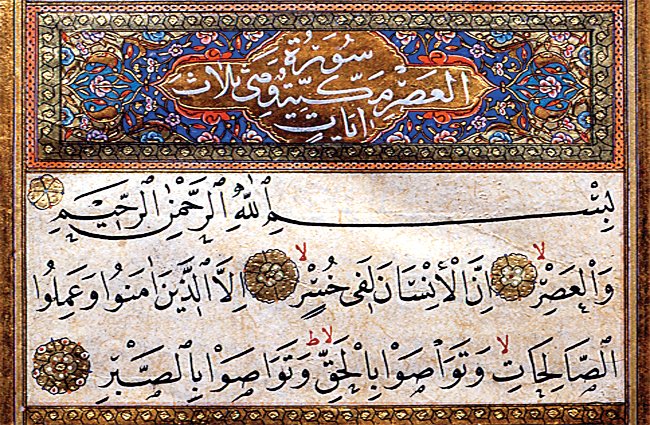 سُورَةُ
الْعَصْرِ مَكِّيَّةٌ وَهِيَ ثَلَاثُ
اٰيَاتٍ
بِسْمِ اللّٰهِ الرَّحْمٰنِ الرَّحِيمِ
وَالْعَصْرِۙ اِنَّ الْاِنْسَانَ لَفٖى خُسْرٍۙ اِلَّا الَّذٖينَ اٰمَنُوا وَعَمِلُوا
الصَّالِحَاتِۙ وَتَوَاصَوْا بِالْحَقِّ وَتَوَاصَوْا بِالصَّبْرِ